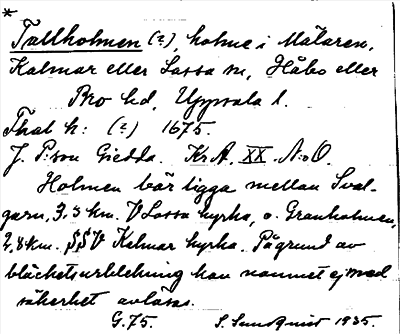 *
Tallholmen (?), holme i Mälaren,
Kalmar eller Lossa sn, Håbo eller
Bro hd, Uppsala l.
Thal h: (?) 1675.
J. P:son Giedda. KrA. XX. N:o O.
Holmen bör ligga mellan Sval-
garn, 3,3 km. V Lossa kyrka, o. Granholmen,
2,8 km. SSV Kalmar kyrka. På grund av
bläckets urblekning kan namnet ej med
säkerhet avläsas.
G. 75. S. Sundqvist 1935.